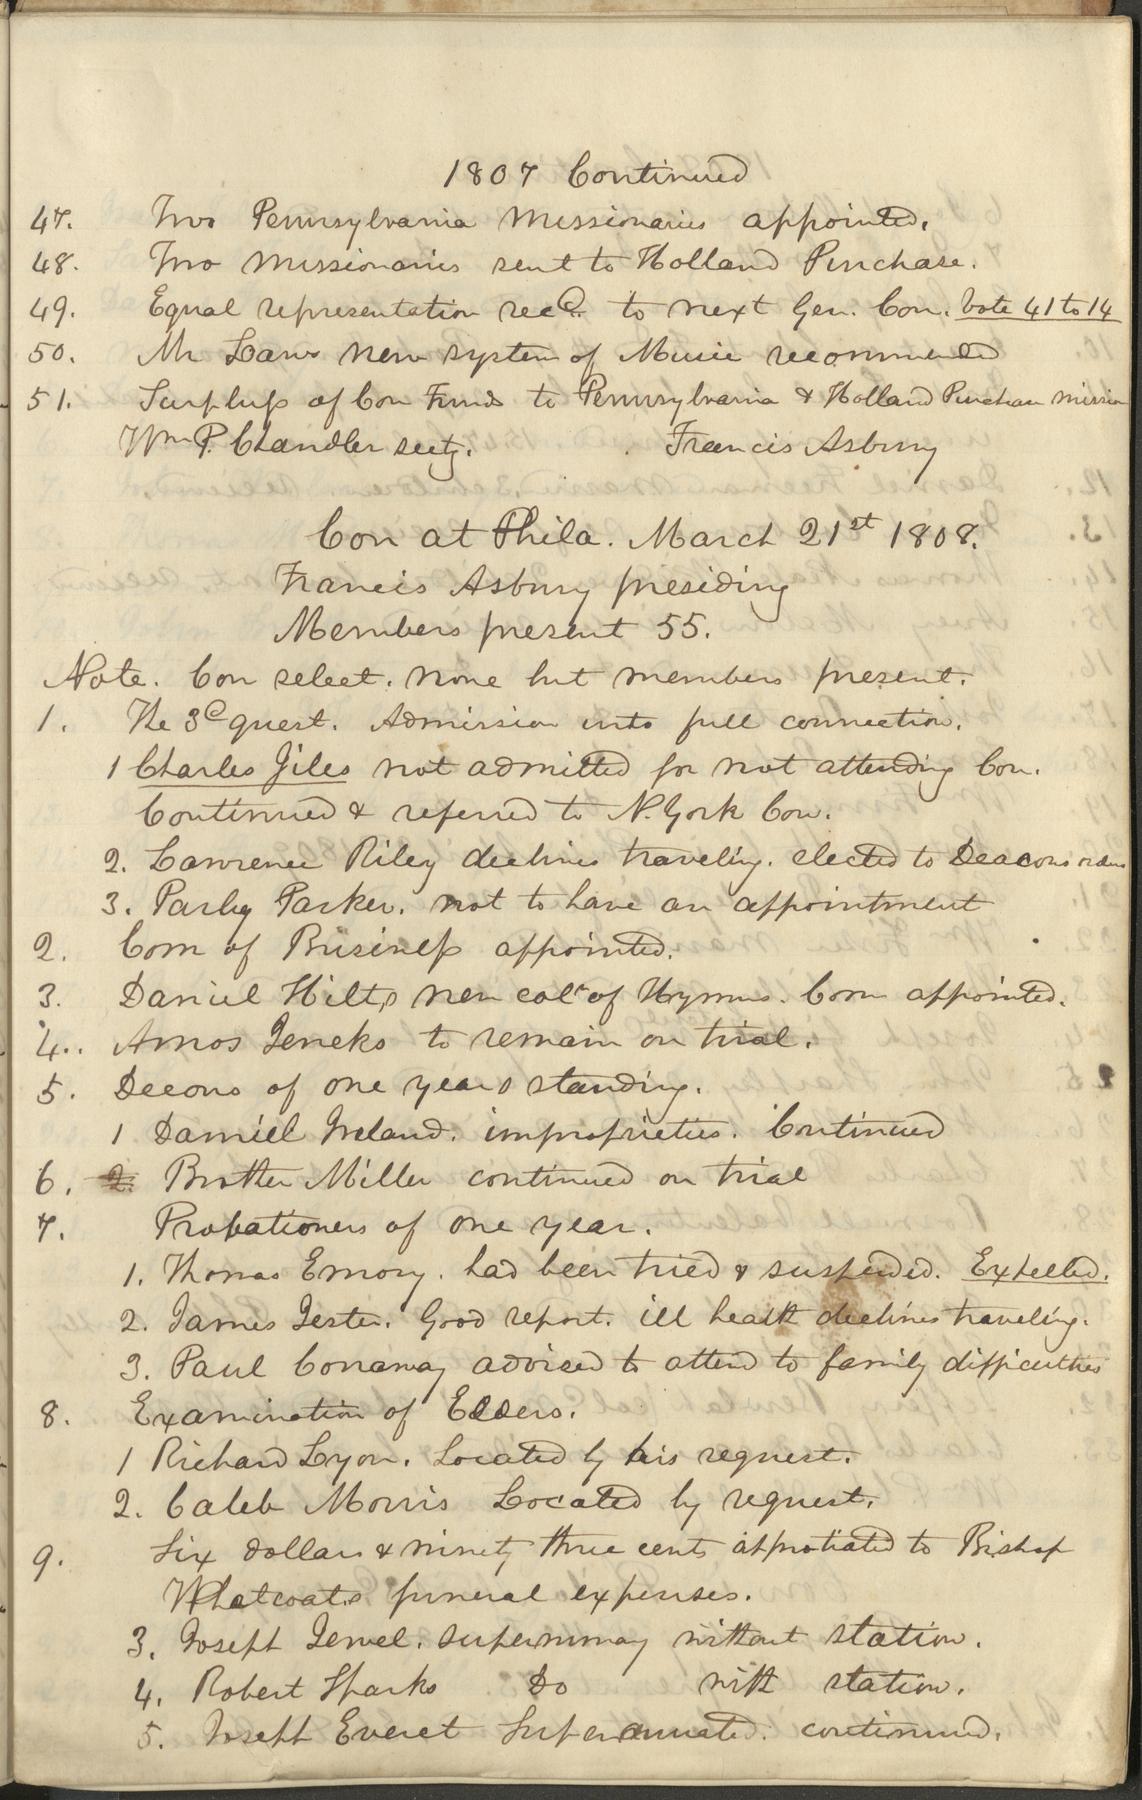 1807 Continued
47. Two Pennsylvania Missionaries appointed.
48. Two Missionaries sent to Holland Purchase.
49. Equal representation recd. to next Gen. Con. Vote 41 to 14
50. Mr Laws new system of Music recommended
51. Surpluss of Con Funds to Pennsylvania & Holland Purchase mission
Wm P. Chandler secty. Francis Asbury
Con at Phila. March 21st 1808.
Francis Asbury presiding
Members present 55.
Note. Con select. none but members present.
1. The 3d quest. Admission into full connection.
1 Charles Giles not admitted for not attending Con.
Continued & referred to N. York Con.
2. Lawrence Riley declines traveling. elected to Deacons orders
3. Parley Parker. not to have an appointment
2. Com of Business appointed.
3. Daniel Hilts new coln of Hymns. Com appointed.
4. Amos Jencks to remain on trial.
5. Decons of one years standing.
1 Daniel Ireland. improprieties. Continued
6. 2. Brother Miller continued on trial
7. Probationers of one year.
1. Thomas Emory. had been tried & suspended. Expelled.
2. James Jester. Good report. ill health declines traveling.
3. Paul Conaway advised to attend to family difficulties
8. Examination of Elders.
1 Richard Lyon. Located by his request.
2. Caleb Morris Located by request.
9. Six dollars & ninety three cents approtiated to Bishop
Whatcoats funeral expenses.
3. Joseph Jewel. supernumay without station.
4. Robert Sparks Do with station.
5. Joseph Everet Superanuated. continued.